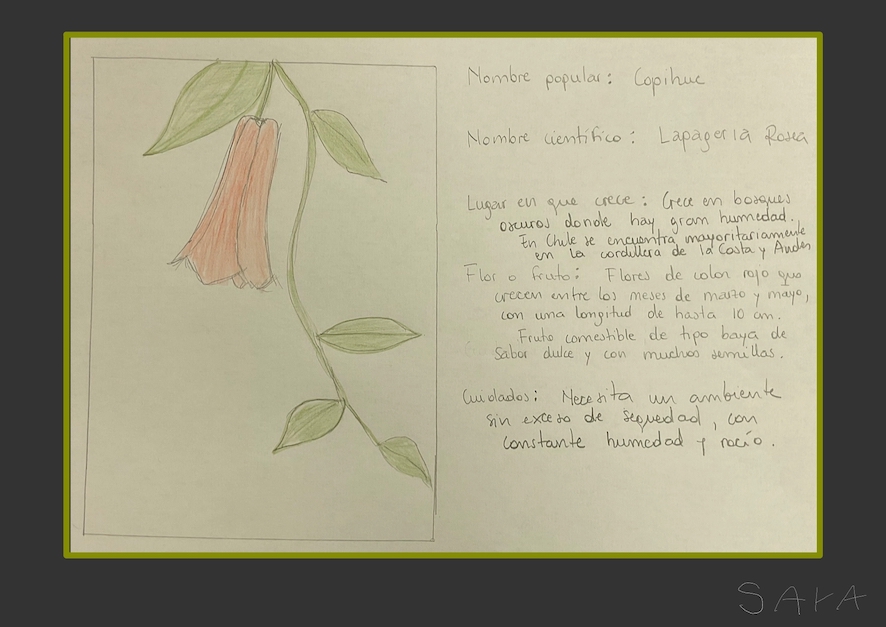 Nombre popular: Copihue
Nombre científico: Lapageria Rosea
Lugar en que crece: Crece en bosques
oscuros donde hay gran humedad.
En Chile se encuentra mayoritariamente
en la cordillera de la Costa y Andes
Flor o fruto: Flores de color rojo que
crecen entre los meses de marzo y mayo,
con una longitud de hasta 10 cm.
Fruto comestible de tipo baya de
sabor dulce y con muchos semillas.
Cuidados: Necesita un ambiente
sin exceso de sequedad, con
constante humedad y rocío.
SArA